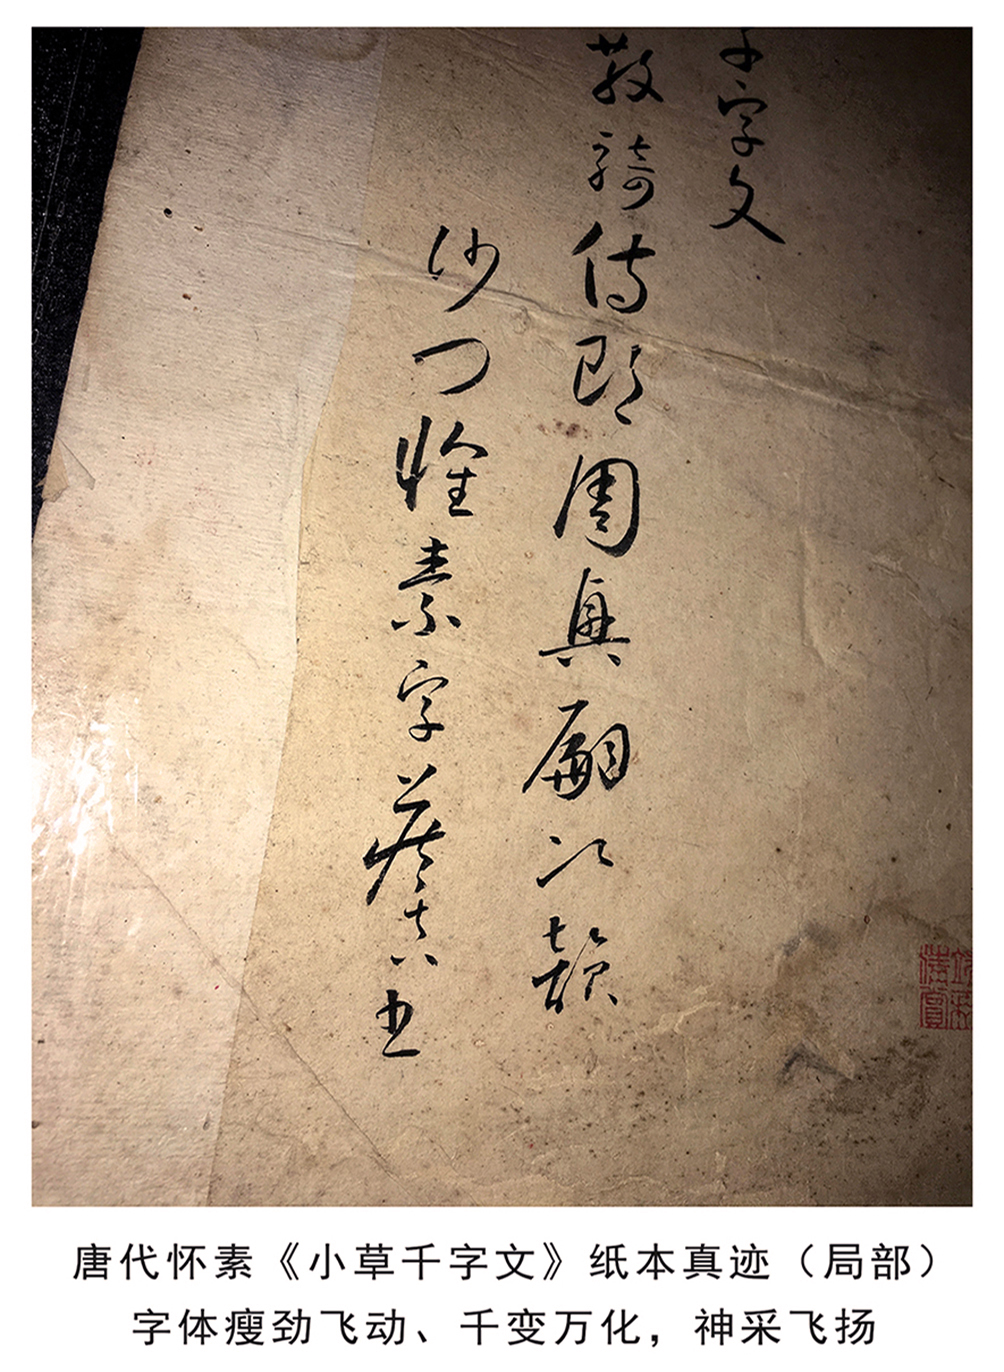 千字文
散骑侍郎周兴嗣次韵
沙门怀素字藏真书
唐代怀素《小草千字文》纸本真迹（局部）
字体瘦劲飞动、千变万化，神采飞扬